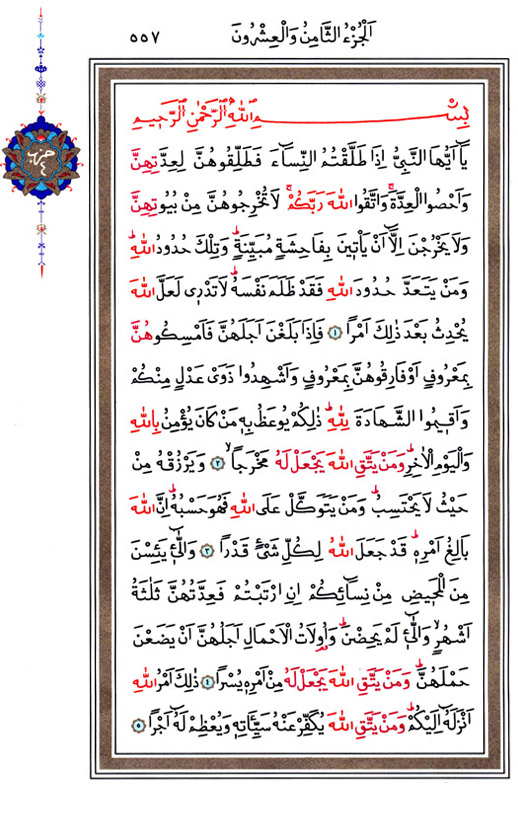 اَلْجُزْءُ الثَّامِنُ وَالْعِشْرُونَ ٥٥٧
حزب ٤
بِسْمِ اللّٰهِ الرَّحْمٰنِ الرَّحٖيمِ
يَٓا اَيُّهَا النَّبِيُّ اِذَا طَلَّقْتُمُ النِّسَٓاءَ فَطَلِّقُوهُنَّ لِعِدَّتِهِنَّ
وَاَحْصُوا الْعِدَّةَۚ وَاتَّقُوا اللّٰهَ رَبَّكُمْۚ لَا تُخْرِجُوهُنَّ مِنْ بُيُوتِهِنَّ
وَلَا يَخْرُجْنَ اِلَّٓا اَنْ يَأْتٖينَ بِفَاحِشَةٍ مُبَيِّنَةٍۜ وَتِلْكَ حُدُودُ اللّٰهِۜ
وَمَنْ يَتَعَدَّ حُدُودَ اللّٰهِ فَقَدْ ظَلَمَ نَفْسَهُۜ لَا تَدْرٖى لَعَلَّ اللّٰهَ
يُحْدِثُ بَعْدَ ذٰلِكَ اَمْرًا ﴿١﴾ فَاِذَا بَلَغْنَ اَجَلَهُنَّ فَاَمْسِكُوهُنَّ
بِمَعْرُوفٍ اَوْ فَارِقُوهُنَّ بِمَعْرُوفٍ وَاَشْهِدُوا ذَوَىْ عَدْلٍ مِنْكُمْ
وَاَقٖيمُوا الشَّهَادَةَ لِلّٰهِۜ ذٰلِكُمْ يُوعَظُ بِهٖ مَنْ كَانَ يُؤْمِنُ بِاللّٰهِ
وَالْيَوْمِ الْاٰخِرِۜ وَمَنْ يَتَّقِ اللّٰهَ يَجْعَلْ لَهُ مَخْرَجًاۙ ﴿٢﴾ وَيَرْزُقْهُ مِنْ
حَيْثُ لَا يَحْتَسِبُۜ وَمَنْ يَتَوَكَّلْ عَلَى اللّٰهِ فَهُوَ حَسْبُهُۜ اِنَّ اللّٰهَ
بَالِغُ اَمْرِهٖۜ قَدْ جَعَلَ اللّٰهُ لِكُلِّ شَىْءٍ قَدْرًا ﴿٣﴾ وَالّٰٓـٖٔى يَئِسْنَ
مِنَ الْمَحٖيضِ مِنْ نِسَٓائِكُمْ اِنِ ارْتَبْتُمْ فَعِدَّتُهُنَّ ثَلٰثَةُ
اَشْهُرٍۙ وَالّٰٓـٖٔى لَمْ يَحِضْنَۜ وَاُولَاتُ الْاَحْمَالِ اَجَلُهُنَّ اَنْ يَضَعْنَ
حَمْلَهُنَّۜ وَمَنْ يَتَّقِ اللّٰهَ يَجْعَلْ لَهُ مِنْ اَمْرِهٖ يُسْرًا ﴿٤﴾ ذٰلِكَ اَمْرُ اللّٰهِ
اَنْزَلَهُٓ اِلَيْكُمْۜ وَمَنْ يَتَّقِ اللّٰهَ يُكَفِّرْ عَنْهُ سَيِّـَٔاتِهٖ وَيُعْظِمْ لَهُٓ اَجْرًا ﴿٥﴾